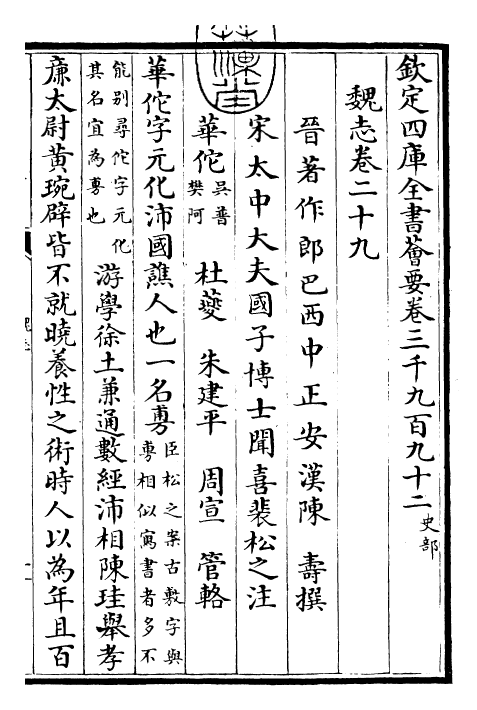 欽定四庫全書薈要卷三千九百九十二史部
魏志卷二十九
晉著作郎巴西中正安漢陳壽撰
宋太中大夫國子博士聞喜裴松之注
華佗吳普樊阿杜夔朱建平周宣管輅
華佗字元化沛國譙人也一名旉臣松之案古敷字與旉相似寫書者多不
能别尋佗字元化其名宜為旉也游學徐土兼通數經沛相陳珪舉孝
廉太尉黃琬辟皆不就曉養性之術時人以為年且百